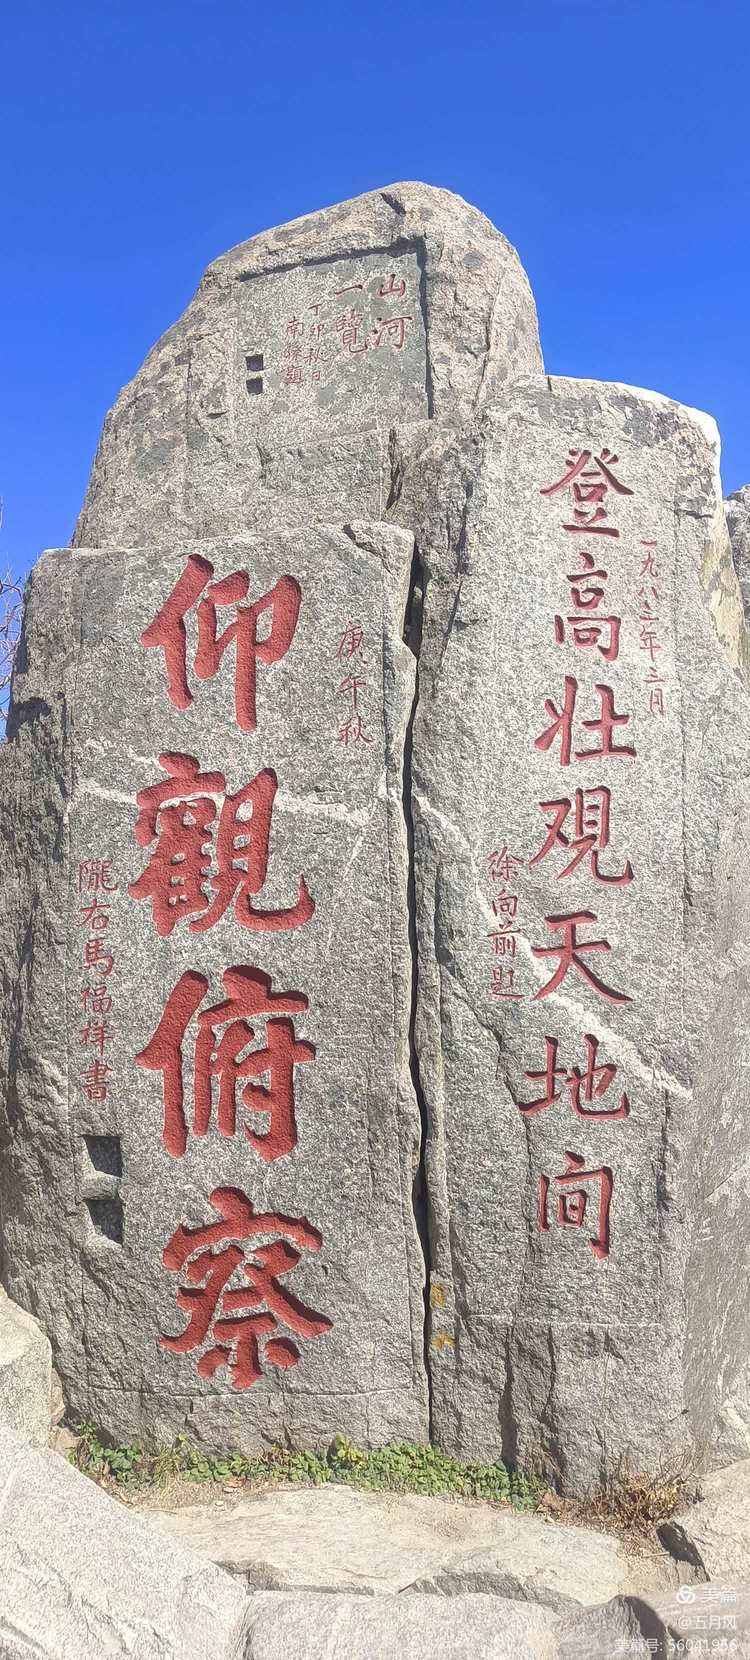 山河
一覽
丁卯秋日
南曦題
登高壮观天地间
一九八三年三月
徐向前题
仰觀俯察
庚午秋
隴右馬福祥書
美篇
@五月风
美篇号: 56041956